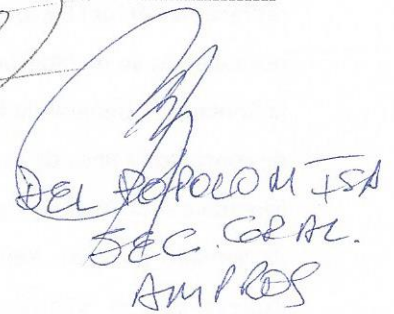 DEL POPOLO M ISA
SEC. GRAL.
AMPROS